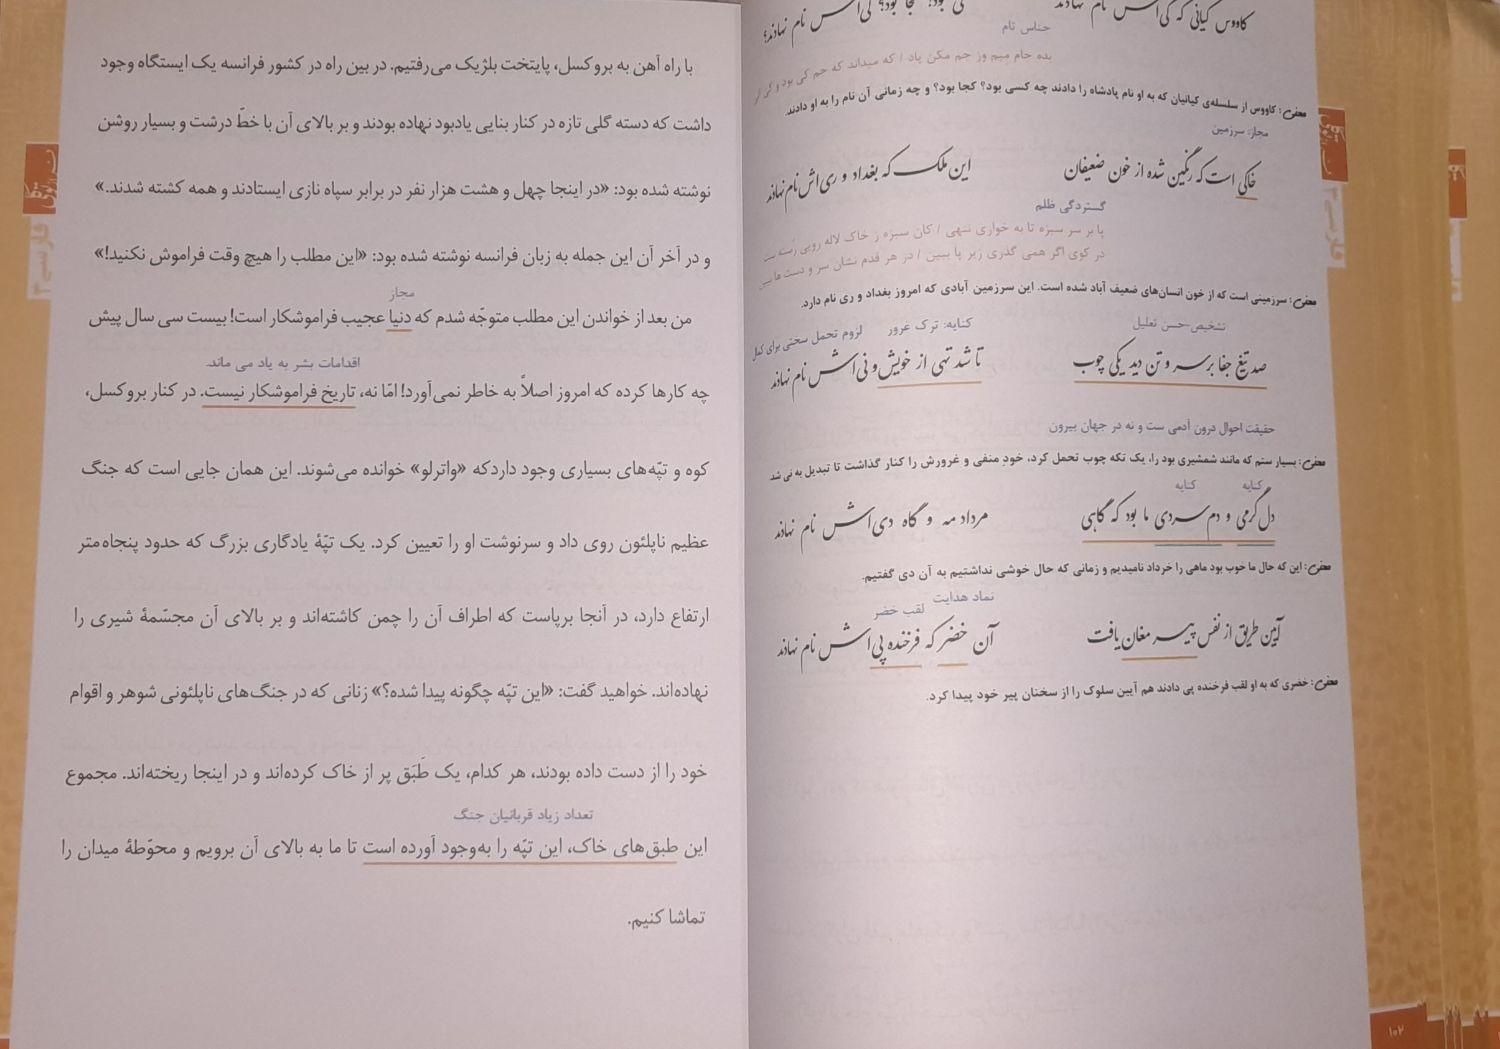 کاووس کیانی که کی‌اش نام نهادند
کی بود؟ کجا بود؟ کی‌اش نام نهادند؟
جناس تام
بده جام میم وز جم مکن یاد / که میداند که جم کی بود و کی
معنی: کاووس از سلسله‌ی کیانیان که به او نام پادشاه را دادند چه کسی بود؟ کجا بود؟ و چه زمانی آن نام را به او دادند.
مجاز: سرزمین
خاکی است که رنگین شده از خون ضعیفان
این ملک که بغداد و ری‌اش نام نهادند
گستردگی ظلم
پا بر سر سبزه تا به خواری ننهی / کان سبزه ز خاک لاله رویی رسته ست
در کوی اگر همی گذری زیر پا ببین / در هر قدم نشان سر و دست ها ببین
معنی: سرزمینی است که از خون انسان‌های ضعیف آباد شده است. این سرزمین آبادی که امروز بغداد و ری نام دارد.
تشخیص-حسن تعلیل
کنایه: ترک غرور
لزوم تحمل سختی برای کمال
صد تیغ جفا بر سر و تن دید یکی چوب
تا شد تهی از خویش و نی‌اش نام نهادند
حقیقت احوال درون آدمی ست و نه در جهان بیرون
معنی: بسیار ستم که مانند شمشیری بود را، یک تکه چوب تحمل کرد، خودِ منفی و غرورش را کنار گذاشت تا تبدیل به نی شد
کنایه
کنایه
دل گرمی و دم سردی ما بود که گاهی
مرداد مه و گاه دی‌اش نام نهادند
معنی: این که حال ما خوب بود ماهی را خرداد نامیدیم و زمانی که حال خوشی نداشتیم به آن دی گفتیم.
نماد هدایت
لقب خضر
آیین طریق از نفس پیر مغان یافت
آن خضر که فرخنده پی‌اش نام نهادند
معنی: خضری که به او لقب فرخنده پی دادند هم آیین سلوک را از سخنان پیر خود پیدا کرد.
۱۰۲
فارسی ۳
با راه آهن به بروکسل، پایتخت بلژیک می‌رفتیم. در بین راه در کشور فرانسه یک ایستگاه وجود
داشت که دسته گلی تازه در کنار بنایی یادبود نهاده بودند و بر بالای آن با خطّ درشت و بسیار روشن
نوشته شده بود: «در اینجا چهل و هشت هزار نفر در برابر سپاه نازی ایستادند و همه کشته شدند.»
و در آخر آن این جمله به زبان فرانسه نوشته شده بود: «این مطلب را هیچ وقت فراموش نکنید!»
مجاز
من بعد از خواندن این مطلب متوجّه شدم که دنیا عجیب فراموشکار است! بیست سی سال پیش
اقدامات بشر به یاد می ماند.
چه کارها کرده که امروز اصلاً به خاطر نمی‌آورد! امّا نه، تاریخ فراموشکار نیست. در کنار بروکسل،
کوه و تپّه‌های بسیاری وجود داردکه «واترلو» خوانده می‌شوند. این همان جایی است که جنگ
عظیم ناپلئون روی داد و سرنوشت او را تعیین کرد. یک تپّهٔ یادگاری بزرگ که حدود پنجاه‌متر
ارتفاع دارد، در آنجا برپاست که اطراف آن را چمن کاشته‌اند و بر بالای آن مجسّمهٔ شیری را
نهاده‌اند. خواهید گفت: «این تپّه چگونه پیدا شده؟» زنانی که در جنگ‌های ناپلئونی شوهر و اقوام
خود را از دست داده بودند، هر کدام، یک طَبَق پر از خاک کرده‌اند و در اینجا ریخته‌اند. مجموع
تعداد زیاد قربانیان جنگ
این طبق‌های خاک، این تپّه را به‌وجود آورده است تا ما به بالای آن برویم و محوّطهٔ میدان را
تماشا کنیم.
فارسی ۳